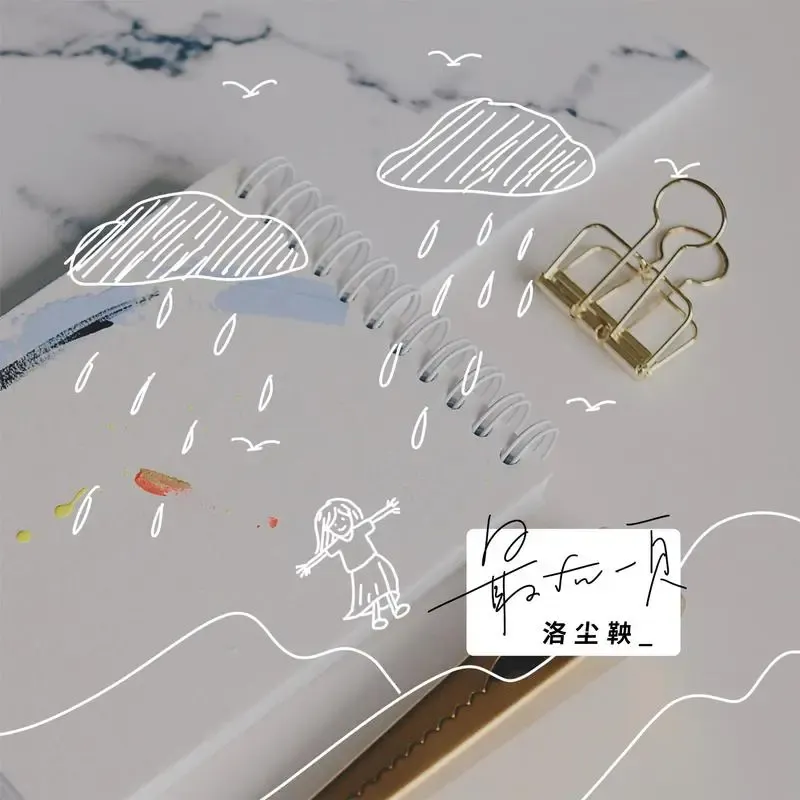 最后一页
洛尘鞅_